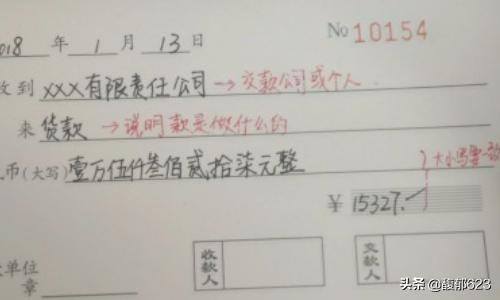 2018 年 1 月 13 日 No 10154
收到 XXX有限责任公司 →交款公司或个人
来 货款 →说明款是做什么的
币(大写) 壹万伍仟叁佰贰拾柒元整 大小写要一致
￥ 15327.
收款人 交款人
单位
章
头条 @馥郁623